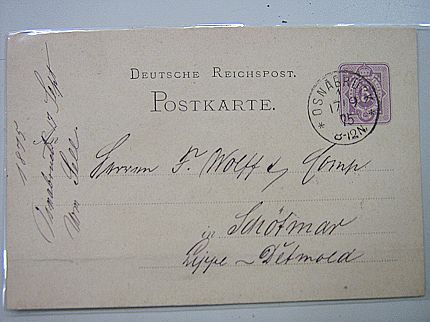 DEUTSCHE REICHSPOST.
POSTKARTE.
* OSNABRÜCK *
17 9
75
8-12N.
Herren F. Wolff & Comp
in Schötmar
Lippe-Detmold
1875
Osnabrück 17 Sept